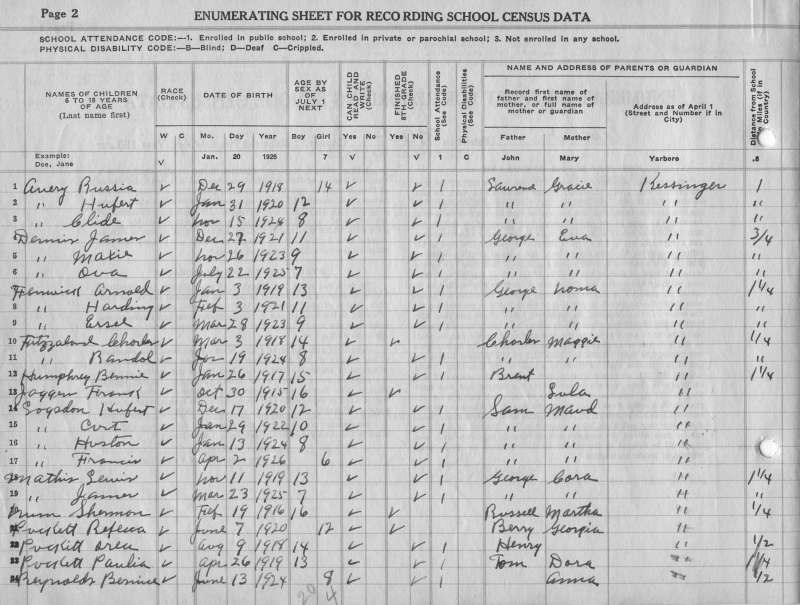 Page 2
ENUMERATING SHEET FOR RECORDING SCHOOL CENSUS DATA
SCHOOL ATTENDANCE CODE:—1. Enrolled in public school; 2. Enrolled in private or parochial school; 3. Not enrolled in any school.
PHYSICAL DISABILITY CODE:—B—Blind; D—Deaf C—Crippled.
NAME AND ADDRESS OF PARENTS OR GUARDIAN
NAMES OF CHILDREN 6 TO 18 YEARS OF AGE (Last name first)
RACE (Check)
DATE OF BIRTH
AGE BY SEX AS OF JULY 1 NEXT
CAN CHILD READ AND WRITE (Check)
FINISHED 8TH GRADE (Check)
School Attendance (See Code)
Physical Disabilities (See Code)
Record first name of father and first name of mother, or full name of mother or guardian
Address as of April 1 (Street and Number if in City)
Distance from School (in Miles (if in Country)
W C Mo. Day Year Boy Girl Yes No Yes No Father Mother
Example: Doe, Jane V Jan. 20 1925 7 V V 1 C John Mary Yarboro .8
1 Avery Russia ✓ Dec 29 1918 14 ✓ ✓ 1 Gracie Kessinger 1
2 " Hufert ✓ Jan 31 1920 12 ✓ ✓ 1 " " " "
3 " Clide ✓ Nov 15 1924 8 ✓ ✓ 1 " " " "
4 James ✓ Dec 27 1921 11 ✓ ✓ 1 George Eva " 3/4
5 " Maxie ✓ Nov 26 1923 9 ✓ ✓ 1 " " " "
6 " Ova ✓ July 22 1925 7 ✓ ✓ 1 " " " "
7 Fenwick Arnold ✓ Jan 3 1919 13 ✓ ✓ 1 George Noma " 1 1/4
8 " Harding ✓ Feb 3 1921 11 ✓ ✓ 1 " " " "
9 " Ersel ✓ Mar 28 1923 9 ✓ ✓ 1 " " " "
10 Charles ✓ Mar 3 1918 14 ✓ ✓ Charles Maggie " 1/4
11 " ✓ 19 1924 8 ✓ ✓ 1 " " " "
12 Humphrey Bennie ✓ Jan 26 1917 15 ✓ ✓ 1 Brent " 1 1/4
13 Frank ✓ Oct 30 1915 16 ✓ ✓ Lula "
14 Logsdon Hufert ✓ Dec 17 1920 12 ✓ ✓ 1 Sam Maud "
15 " Curt ✓ Jan 29 1922 10 ✓ ✓ 1 " " "
16 " Huston ✓ Jan 13 1924 8 ✓ ✓ 1 " " "
17 " Francis ✓ Apr 2 1926 6 ✓ ✓ 1 " " "
18 Mathis Lewis ✓ Nov 11 1919 13 ✓ ✓ 1 George Cora " 1 1/4
19 " James ✓ Mar 23 1925 7 ✓ ✓ 1 " " " "
20 Shermon ✓ Feb 19 1916 16 ✓ ✓ Russell Martha " 1/4
21 Puckett ✓ June 7 1920 12 ✓ ✓ Berry Georgia "
22 Puckett ✓ Aug 9 1918 14 ✓ ✓ 1 Henry " 1/2
23 Puckett Paulia ✓ Apr 26 1919 13 ✓ ✓ 1 Tom Dora " 1/4
24 Reynolds ✓ June 13 1924 8 ✓ ✓ 1 Anna " 1/2
20 4